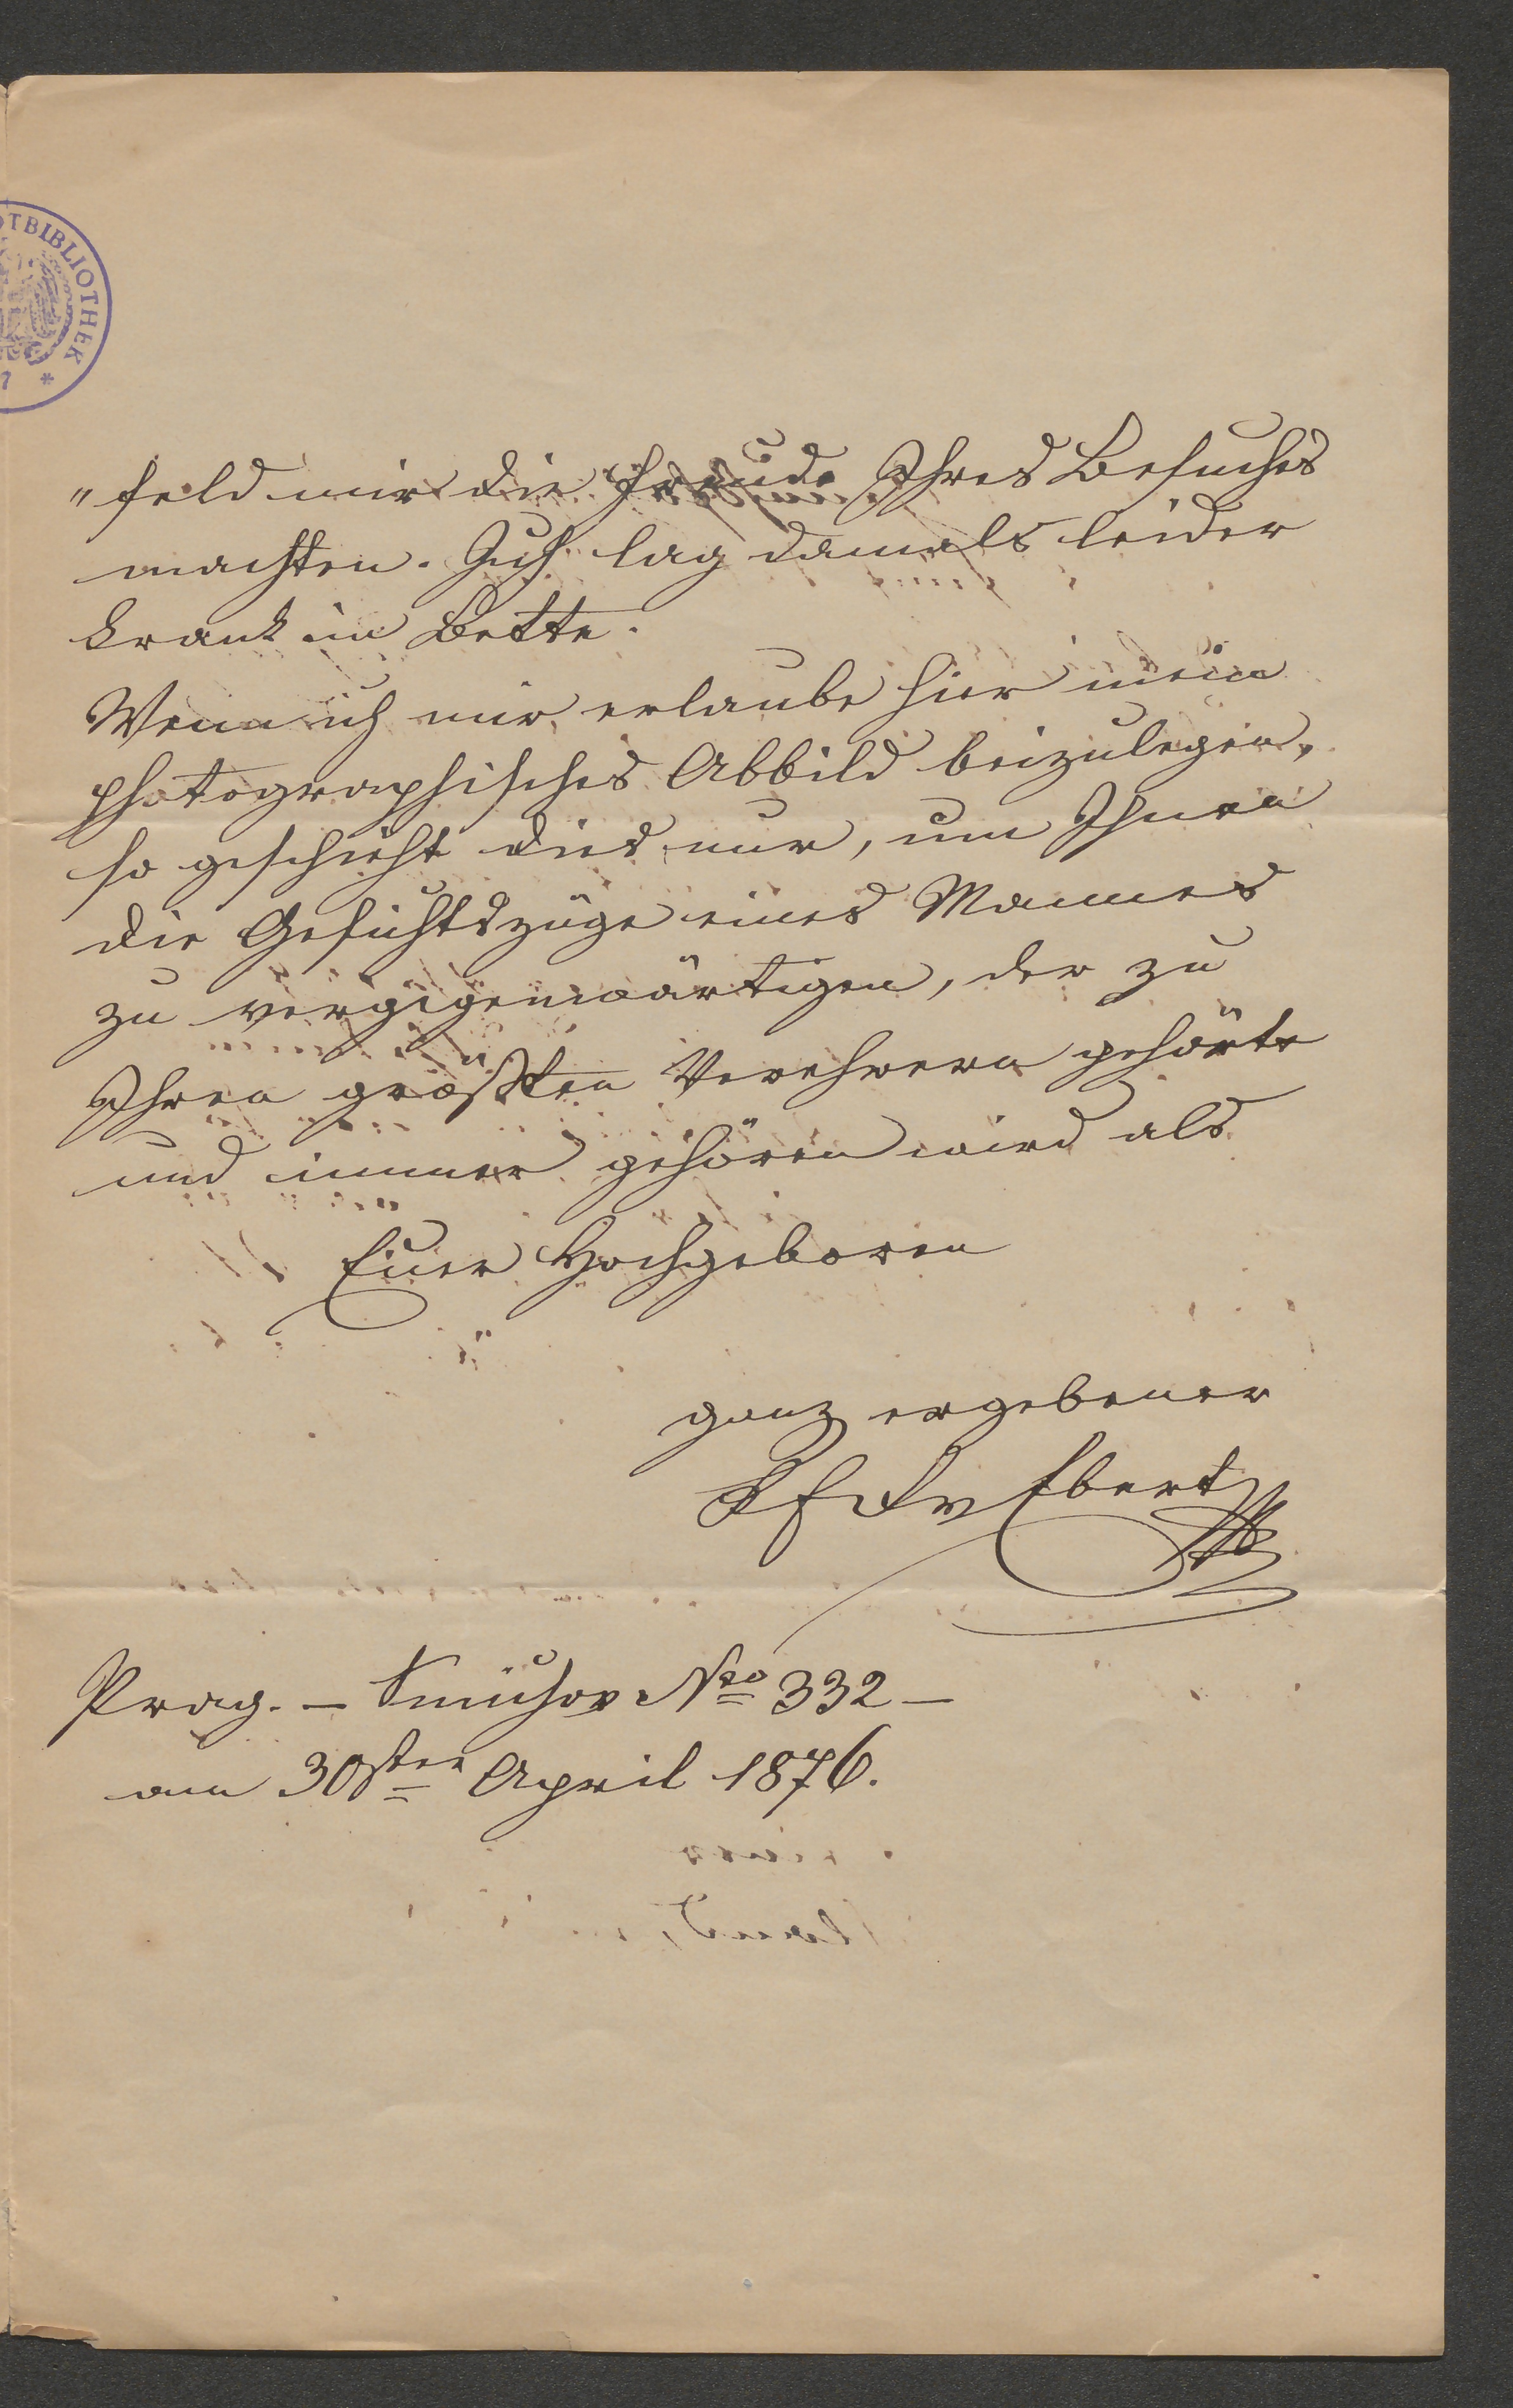 TBIBLIOTHEK
7 *
„feld mir die Freude Ihres Besuches
machten. Ich lag damals leider
krank im Bette.
Wenn ich mir erlaube hier mein
photographisches Abbild beizulegen,
so geschieht dies nur, um Ihnen
die Gesichtszüge eines Mannes
zu vergegenwärtigen, der zu
Ihren größten Verehrern gehörte
und immer gehören wird als
Euer Hochgeboren
ganz ergebener
Ebert
Prag. – Smichov Nro 332 –
am 30sten April 1876.